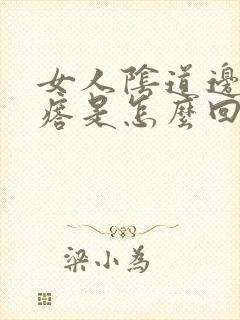 女人陰道邊
痞是怎麼回
梁小為